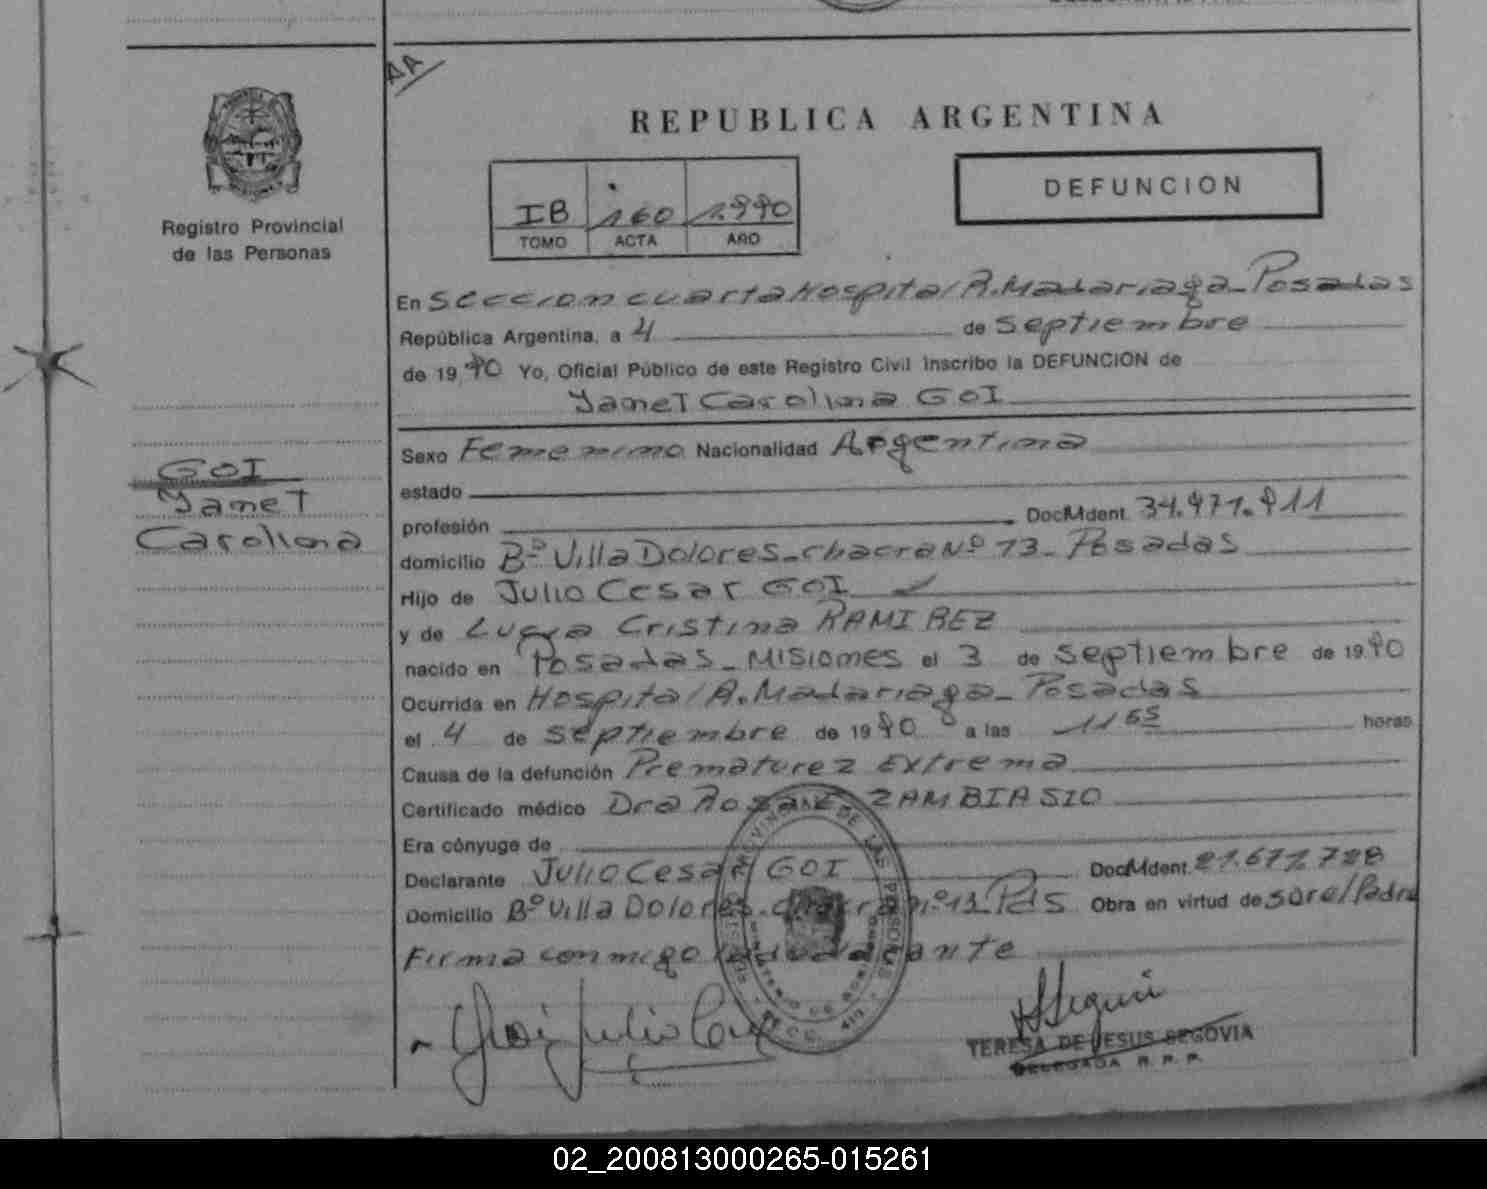 AA
REPUBLICA ARGENTINA
IB 160 1.990
TOMO ACTA AÑO
DEFUNCION
Registro Provincial
de las Personas
En Sección cuarta Hospital R. Madariaga - Posadas
República Argentina, a 4 de Septiembre
de 19 90 Yo, Oficial Público de este Registro Civil inscribo la DEFUNCION de
Yanet Carolina GOI
GOI
Yanet
Carolina
Sexo Femenino Nacionalidad Argentina
estado
profesión Doc. Ident. 34.971.911
domicilio Bº Villa Dolores - chacra Nº 13 - Posadas
Hijo de Julio Cesar GOI
y de Cristina RAMIREZ
nacido en Posadas - Misiones el 3 de Septiembre de 19 90
Ocurrida en Hospital R. Madariaga - Posadas
el 4 de Septiembre de 19 90 a las horas
Causa de la defunción Prematurez Extrema
Certificado médico Dra ZAMBIASIO
Era cónyuge de
Declarante Julio Cesar GOI Doc. Ident. 21.672.728
Domicilio Bº Villa Dolores - chacra nº 13 Pdas Obra en virtud de
Firma conmigo
TERESA DE JESUS SEGOVIA
DELEGADA R. P. P.
02_200813000265-015261